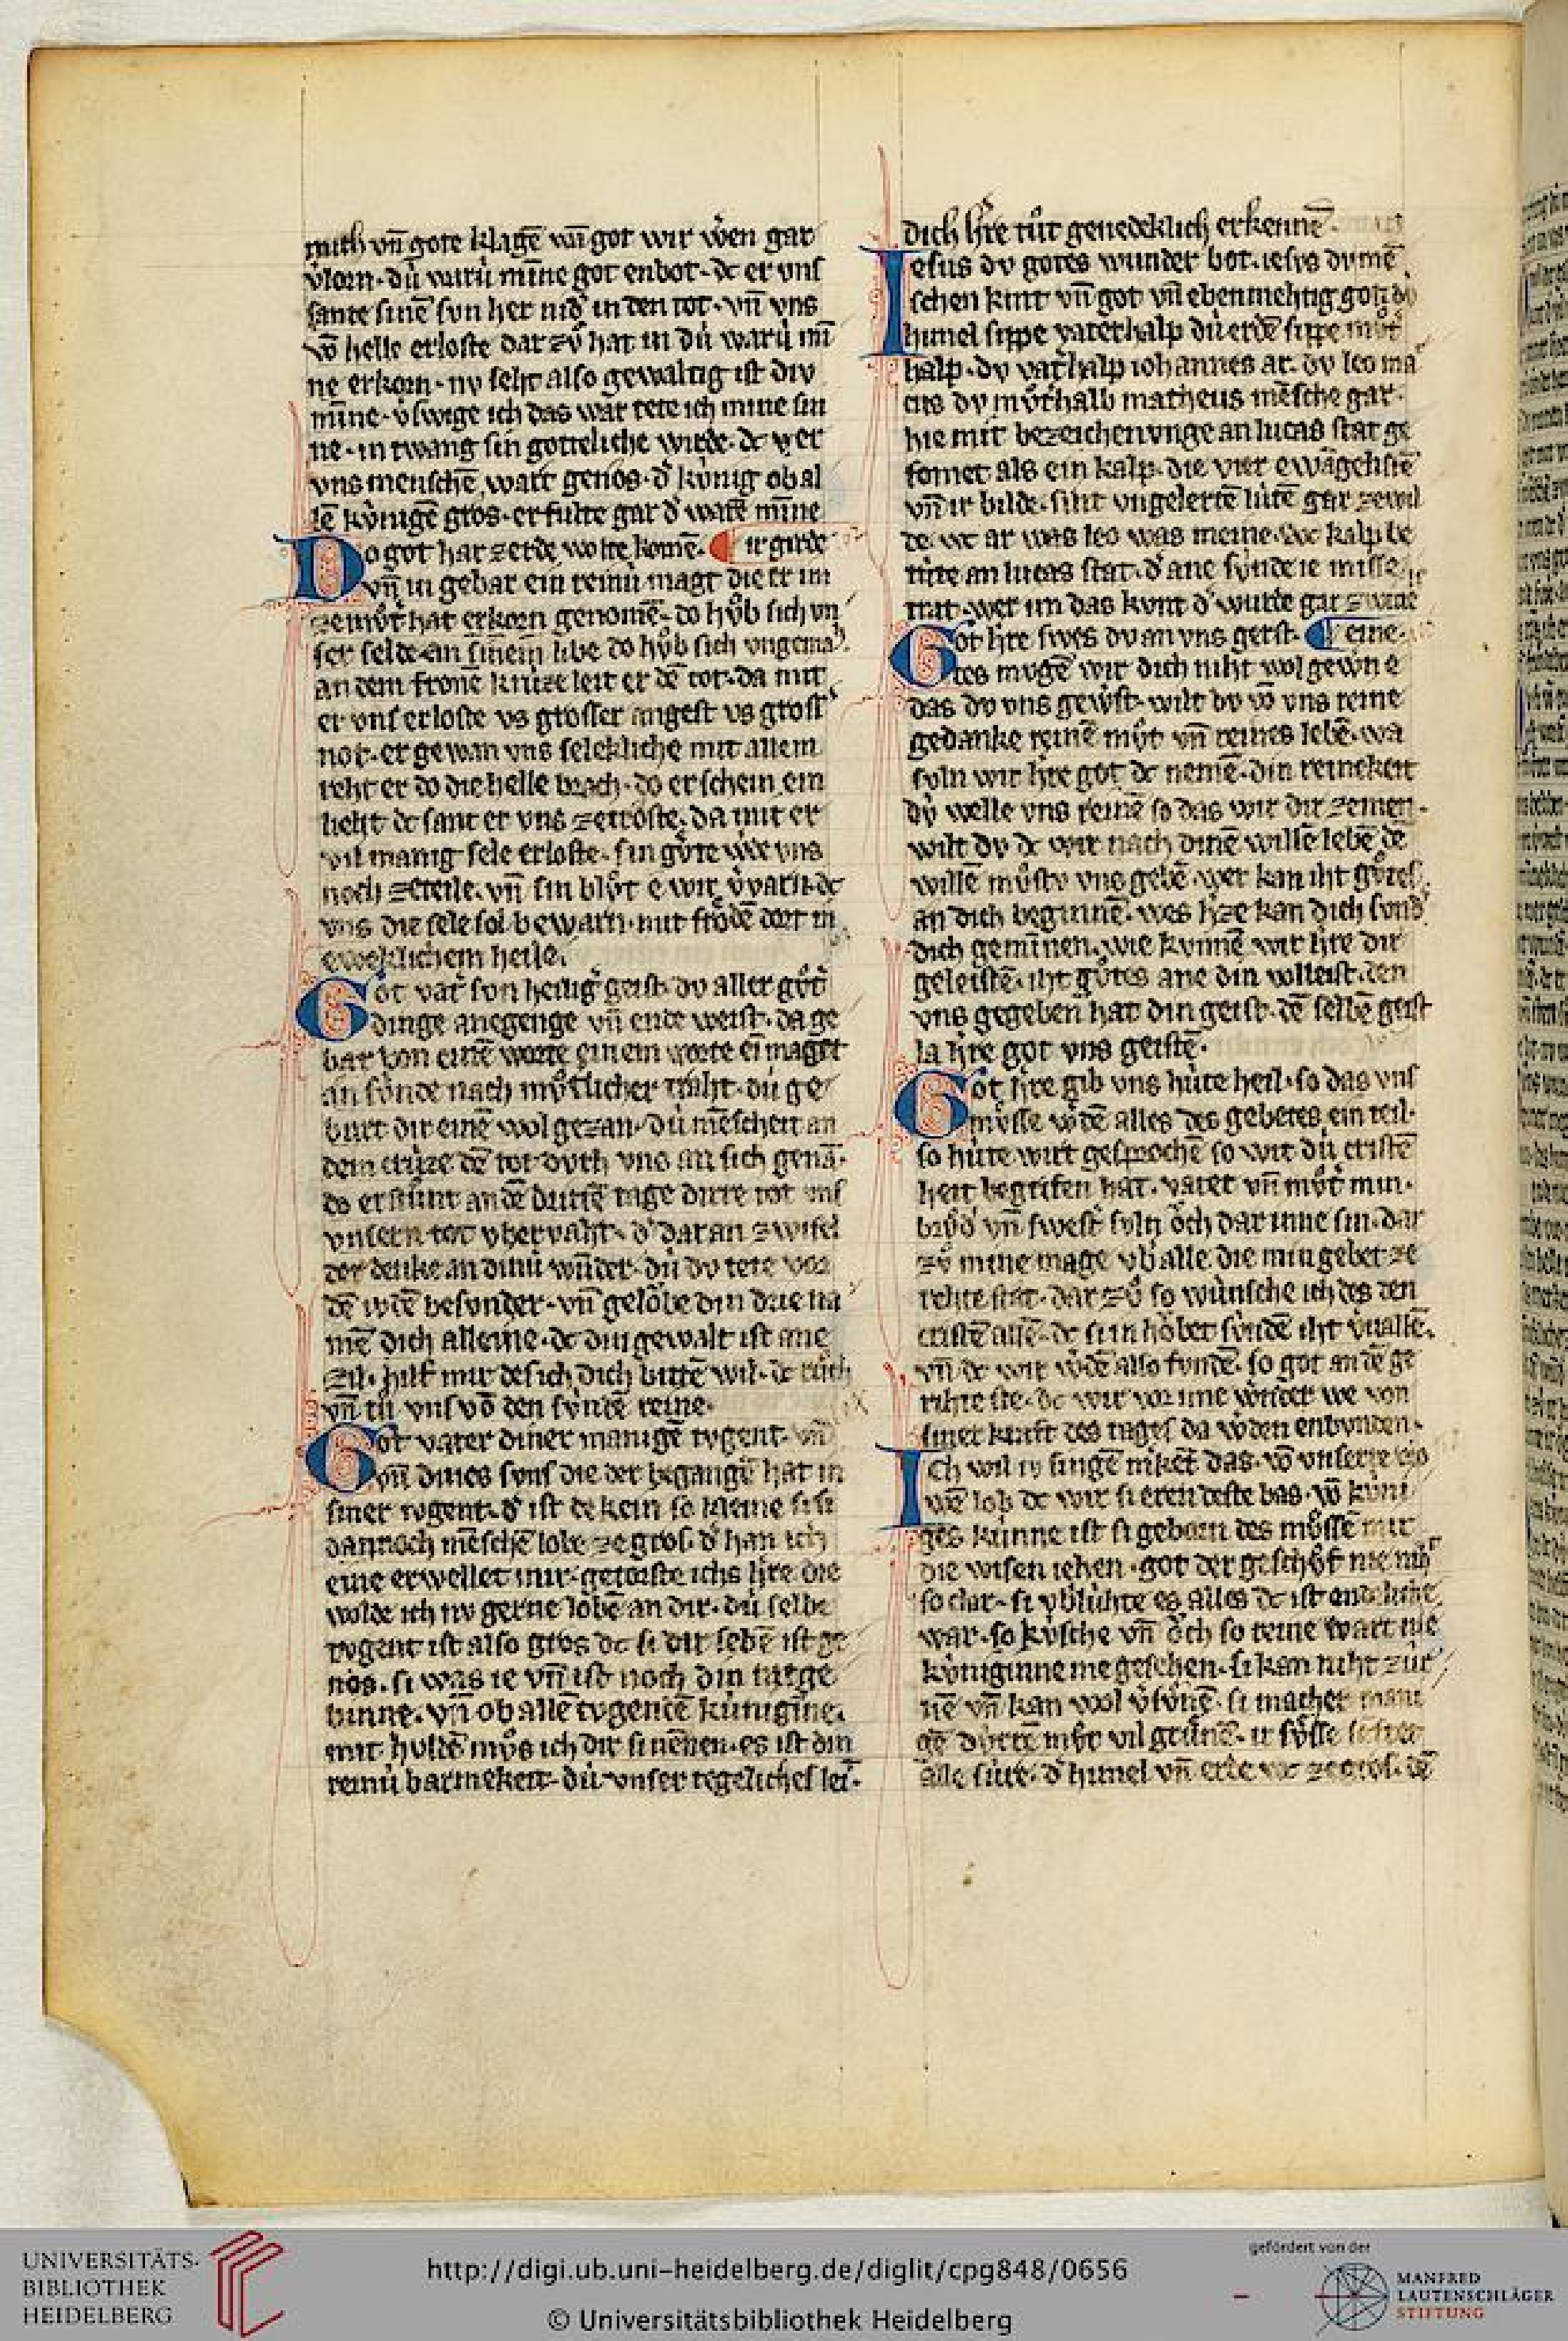 mich vn̄ gote klagē wā got wir wͤen gar
v̓lorn· dú warú miñe got enbot· dc er vnſ
ſante ſinē ſvn her nid̓ in den tot· vn̄ vns
vō helle erloſte dar zv̊ hat in dú warú mī
ne erkorn· nv ſeht alſo gewaltig iſt div
miñe· v̓ſwige ich das war tete ich mine ſin
ne· in twang ſin gotteliche wirde· dc wer
vns menſchē wart genos· d̓ kúnig ob al
lē kúnigē gros· er fulte gar d̓ warē miñe
Do got har zerde wolte komē· ir girde
vn̄ in gebar ein reinú magt die er im
ze mv̊t hat erkorn genomē· do hv̊b ſich vn
ſer ſelde an ſinem libe do hv̊b ſich vngemah·
an dem fronē krúze leit er dē tot· da mit
er vnſ erloſte vs groſſer angeſt vs groſſ̓
not· er gewan vns ſelekliche mit allem
reht er do die helle brach· do er ſchein ein
lieht dc ſant er vns ze troſte· da mit er
vil manig ſele erloſte· ſin gv̊te w̓de vns
noch ze teile· vn̄ ſin blv̊t e wir v̓varn· dc
vns die ſele ſol bewarn· mit frödē dort in
eweklichem heile·
Got vat̓ ſvn heilig geiſt· dv aller gv̊t̓
dinge anegenge vn̄ ende weiſt· da ge
bar von einē worte einem worte ei maget
an ſúnde nach mv̊tlicher traht· dú ge
burt dir einē wol gezan· dú mēſcheit an
dem crúze dē tot dvrh vns an ſich genā·
do erſtv̊nt an dē dritē tage dirre tot vnſ
vnſern tot vbervaht· d̓ dar an zwifel
der denke an dinú wūder· dú dv tete vor
dē w̓dē beſvnder· vn̄ gelöbe din drie na
mē dich alleine· dc din gewalt iſt ane
zil· hilf mir deſ ich dich bittē wil· dc rv̊ch
vn̄ tv̊ vnſ vō den ſúndē reine·
Got vater diner manigē tvgent· vn̄
vn̄ dines ſvnſ die der begangē hat in
ſiner tvgent· d̓ iſt dekein ſo kleine ſi ſi
dannoch mēſchē lobe ze gros· d̓ han ich
eine erwellet mir· getorſte ichs h̓re die
wolde ich nv gerne lobē an dir· dú ſelbe
tvgent iſt alſo gros dc ſi dir ſelbē iſt ge
nos· ſi was ie vn̄ iſt noch din ratge
binne· vn̄ ob allē tvgendē kúnigīne·
mit huldē mv̊s ich dir ſi nēnen· es iſt din
reinú barmekeit· dú vnſer tegeliches lei·
dich h̓re tv̊t genedeklich erkennē·
Ieſus dv gotes wunder bot· ieſvs dv mē
ſchen kint vn̄ got vn̄ ebenmehtig got· dv
himel ſippe vaterhalp dú erdē ſippe mv̊t̓
halp· dv vat̓halp iohannes ar· dv leo mar
cus dv mv̊t̓halb matheus mēſche gar·
hie mit bezeichenvnge an lucas ſtat ge
fomet als ein kalp· die vier ewāgeliſtē
vn̄ ir bilde· ſint vngelertē lútē gar ze wil
de· wc ar was leo was meine· wc kalp be
túte an lucas ſtat· d̓ ane ſúnde ie miſſe
trat· wer im das kvnt d̓ wurde gar zwene
Got h̓re ſwes dv an vns gerſt· eine·
tes mvgē wir dich niht wol gewͤne
das dv vns gewͤſt· wilt dv vō vns reine
gedanke reinē mv̊t vn̄ reines lebē· wa
ſvln wir h̓re got dc nemē· din reinekeit
dú welle vns reinē ſo das wir dir zemen·
wilt dv dc wir nach dinē willē lebē dē
willē mv̊ſtv vns gebē· wer kan iht gv̊tes
an dich beginnē· wes h̓re kan dich ſvnd̓
dich geminnen· wie kvnnē wir h̓re dir
geleiſtē· iht gv̊tes ane din volleiſt· den
vns gegeben hat din geiſt· dē ſelbē geiſt
la h̓re got vns geiſtē·
Got h̓re gib vns húte heil· ſo das vnſ
mv̊ſſe w̓dē alles des gebetes ein teil·
ſo húte wirt geſprochē ſo wit dú criſtē
heit begrifen hat· vater vn̄ mv̊t̓ min·
brv̊d̓ vn̄ ſweſt̓ ſvln öch dar inne ſin· dar
zv̊ mine mage vb̓ alle die min gebet ze
rehte ſtat· dar zv̊ ſo wúnſche ich des den
criſtē allē· dc ſi in höbet ſúndē iht v̓vallē·
vn̄ dc wir w̓dē alſo fvndē· ſo got an dē ge
rihte ſte· dc wir vor ime wider we von
ſiner kraft des tageſ da w̓den enbvnden·
Ich wil iv ſingē niht das· vō vnſerre
wē lob dc wir ſi eren deſte bas· vō kúni
ges kúnne iſt ſi geborn des mv̊ſſē mir
die wiſen iehen· got der geſchv̊f nie niht
ſo clar· ſi vb̓lúhte es alles dc iſt endeliche
war· ſo kúſche vn̄ öch ſo reine wart nie
kúniginne me geſehen· ſi kan niht zúr
nē vn̄ kan wol v̓ſv̊nē· ſi machet mani
gē dúrrē mv̊t vil grúne· ir ſv̊ſſe
alle ſúre· d̓ himel vn̄ erde wc ze gros· dē
UNIVERSITÄTS-
BIBLIOTHEK
HEIDELBERG
http://digi.ub.uni-heidelberg.de/diglit/cpg848/0656
© Universitätsbibliothek Heidelberg
gefördert von der
MANFRED
LAUTENSCHLÄGER
STIFTUNG